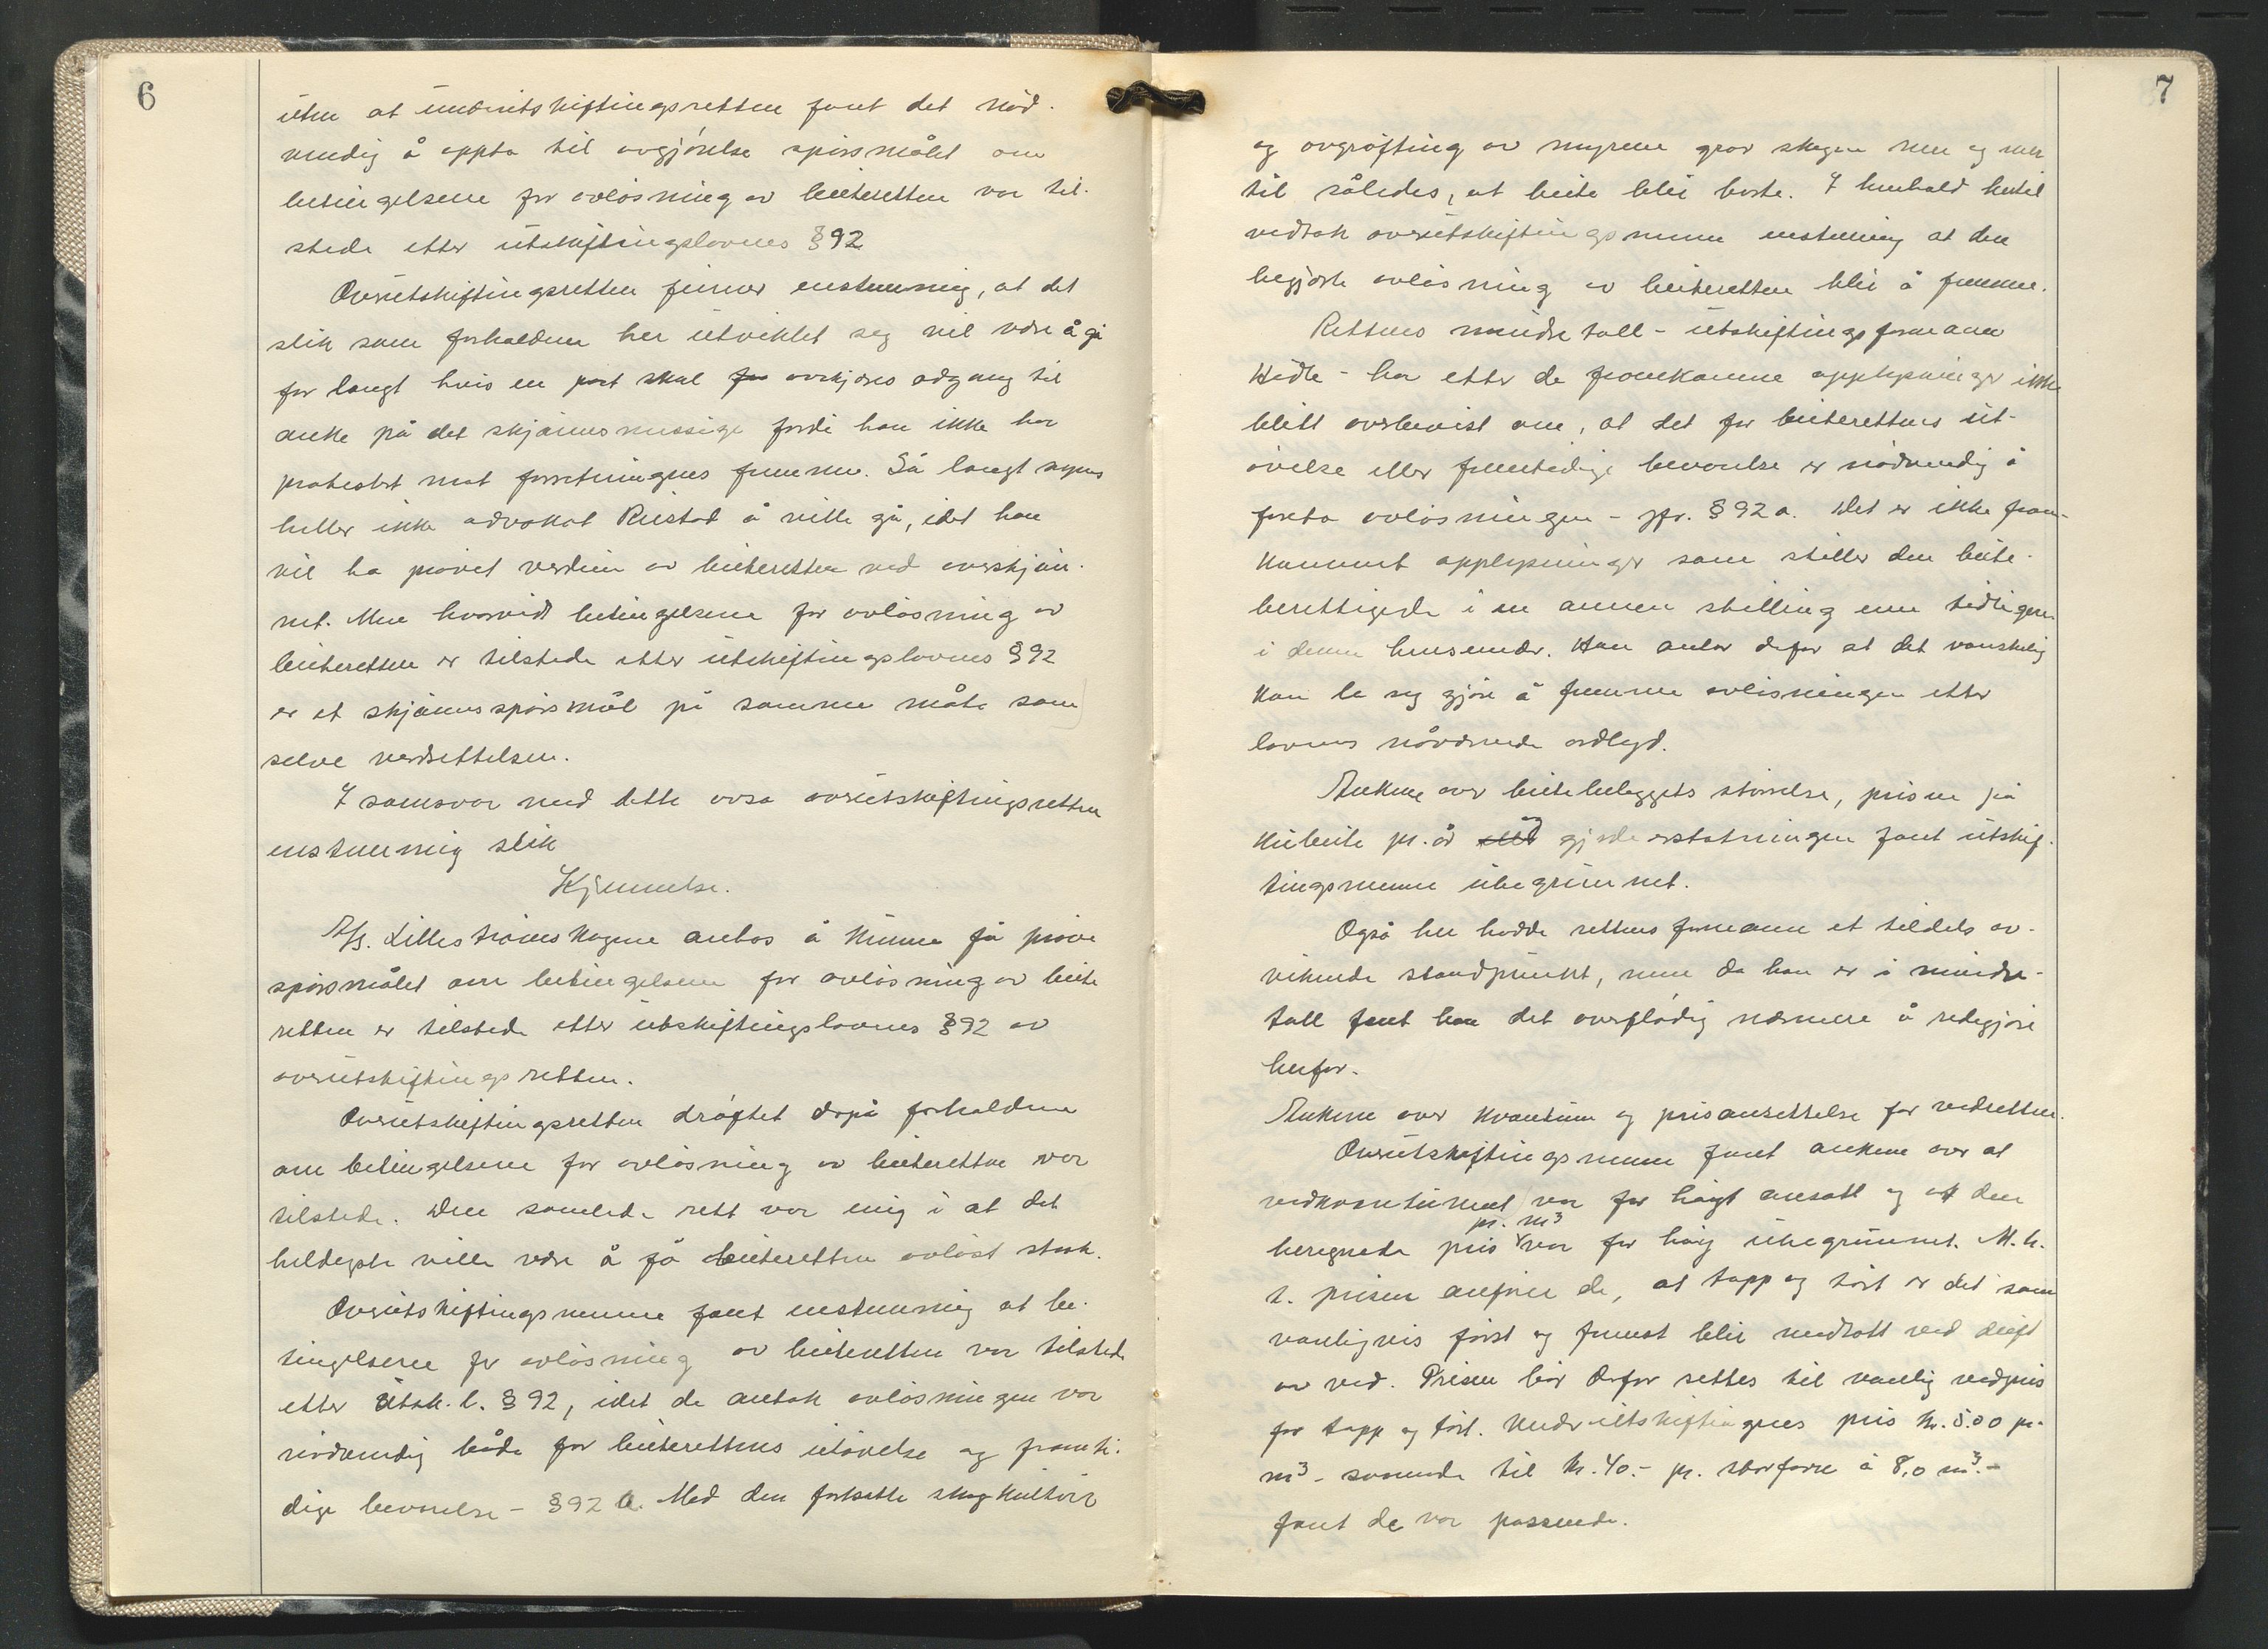 6
uten at underutskiftingsretten fant det nød-
vendig å oppta til avgjørelse spørsmålet om
betingelsene for avløsning av beiteretten var til-
stede etter utskiftingslovens § 92
Overutskiftingsretten finner enstemmig, at det
slik som forholdene her utviklet seg vil være å gå
for langt hvis en part skal for avskjæres adgang til
anke på det skjønnsmessige fordi han ikke har
protestert mot forretningens fremme. Så langt synes
heller ikke advokat Riestad å ville gå, idet han
vil ha prøvet verdien av beiteretten ved overskjøn-
net. Men hvorvidt betingelsene for avløsning av
beiteretten er tilstede etter utskiftingslovens § 92
er et skjønnsspørsmål på samme måte som
selve verdsettelsen.
I samsvar med dette avsa overutskiftingsretten
enstemmig slik
Kjennelse.
A/S. Lillestrømskogene antas å kunne få prøve
spørsmålet om betingelsene for avløsning av beite
retten er tilstede etter utskiftingslovens § 92 av
overutskiftingsretten.
Overutskiftingsretten drøftet derpå forholdene
om betingelsene for avløsning av beiteretten var
tilstede. Den samlede rett var enig i at det
heldigste ville være å få beiteretten avløst straks.
Overutskiftingsmenne fant enstemmig at be-
tingelsene for avløsning av beiteretten var tilstede
etter utsk. l. § 92, idet de antok avløsningen var
nødvendig både for beiterettens utøvelse og framti-
dige bevarelse - § 92 a. Med den fortsatte skogkultur
7
og avgrøfting av myrene gror skogen mer og mer
til således, at beite blir borte. I henhold hertil
vedtok overutskiftingsmenne enstemmig at den
begjærte avløsning av beiteretten blir å fremme.
Rettens mindretall - utskiftingsformann
Hidle - har etter de framkomne opplysninger ikke
blitt overbevist om, at det for beiterettens ut-
øvelse eller fremtidige bevarelse er nødvendig å
foreta avløsningen - jfr. § 92 a. Det er ikke fram-
kommet opplysninger som stiller den beite-
berettigede i en annen stilling enn tidligere
i denne henseender. Han antar derfor at det vanskelig
kan la seg gjøre å fremme avløsningen etter
lovens nåværende ordlyd.
Ankene over beitebeleggets størrelse, prisen på
kubeite pr. år og gjerdeerstatningen fant utskif-
tingsmenne ubegrunnet.
Også her hadde rettens formann et tildels av-
vikende standpunkt, men da han er i mindre-
tall fant han det overflødig nærmere å redegjøre
herfor.
Ankene over kvantum og prisansettelse for vedretten.
Overutskiftingsmenne fant ankene over at
vedkvantumet var for høyt ansatt og at den
beregnede pris pr. m³ var for høy ubegrunnet. M.h.
t. prisen anfører de, at topp og tørt er det som
vanligvis først og fremst blir medtatt ved drift
av ved. Prisen bør derfor settes til vanlig vedpris
for topp og tørt. Underutskiftingens pris kr. 5.00 pr.
m³ - svarende til kr. 40.- pr. storfavn à 8,0 m³ -
fant de var passende.